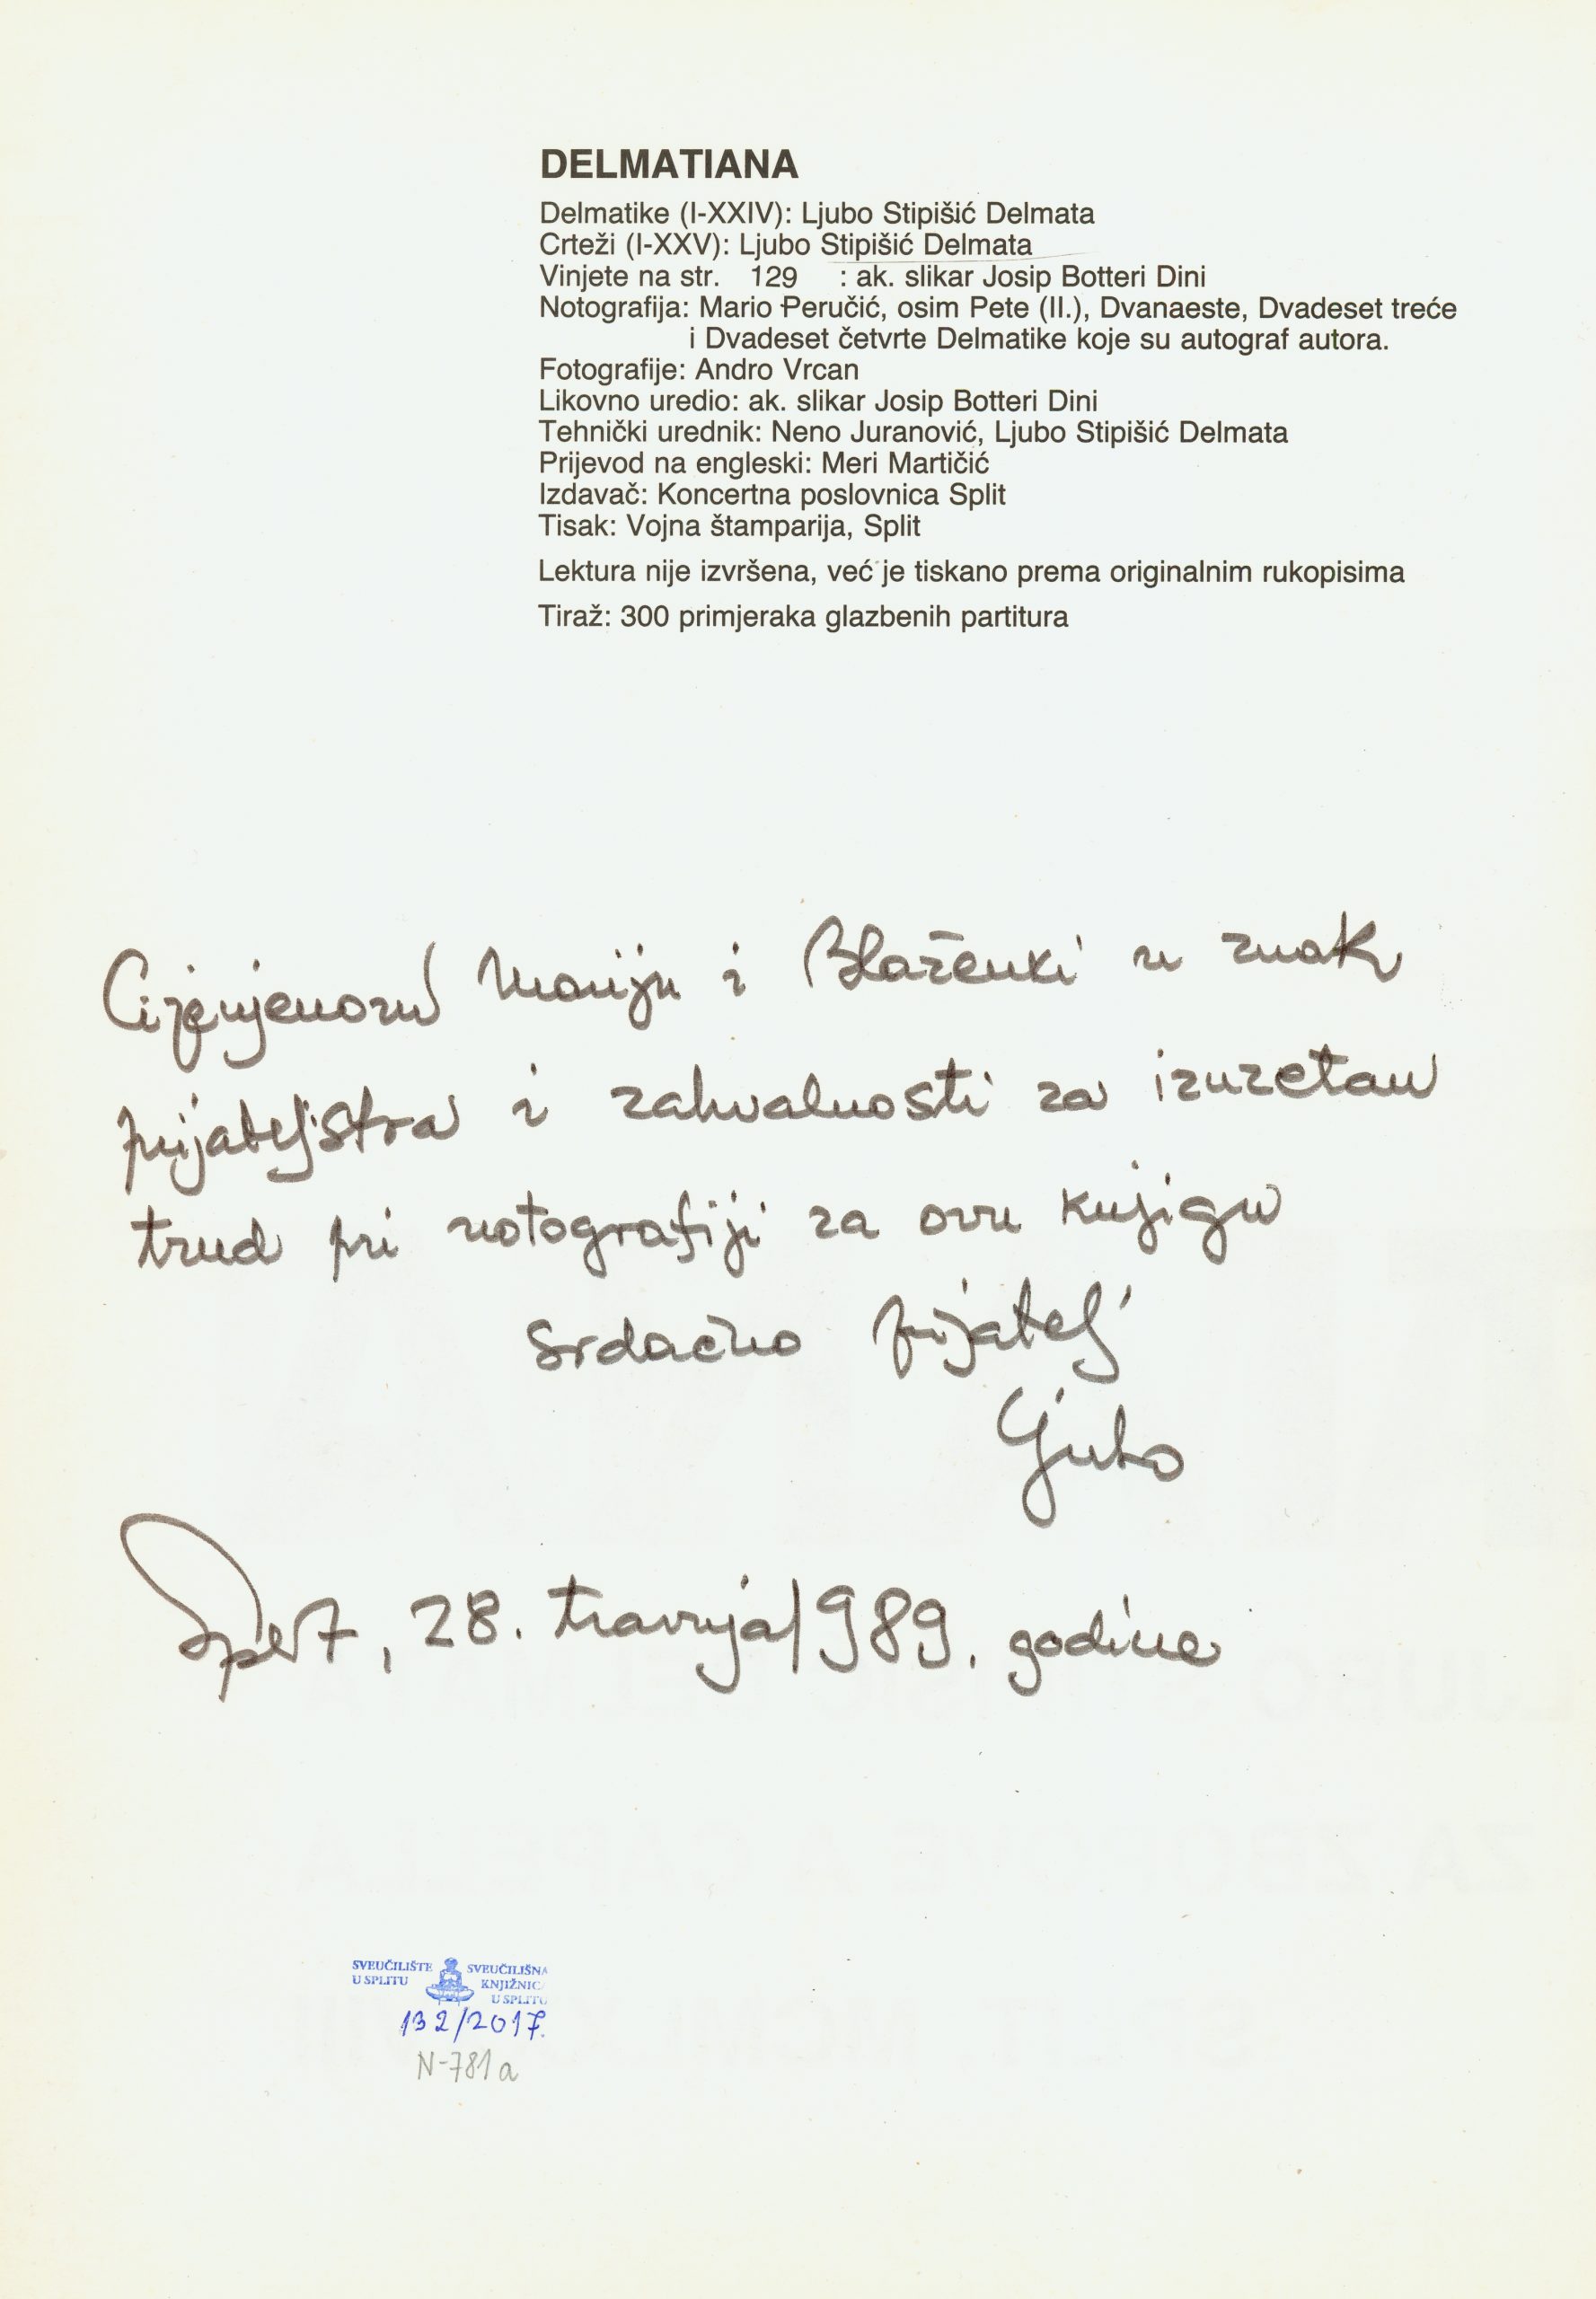 DELMATIANA
Delmatike (I-XXIV): Ljubo Stipišić Delmata
Crteži (I-XXV): Ljubo Stipišić Delmata
Vinjete na str. 129 : ak. slikar Josip Botteri Dini
Notografija: Mario Peručić, osim Pete (II.), Dvanaeste, Dvadeset treće
i Dvadeset četvrte Delmatike koje su autograf autora.
Fotografije: Andro Vrcan
Likovno uredio: ak. slikar Josip Botteri Dini
Tehnički urednik: Neno Juranović, Ljubo Stipišić Delmata
Prijevod na engleski: Meri Martičić
Izdavač: Koncertna poslovnica Split
Tisak: Vojna štamparija, Split
Lektura nije izvršena, već je tiskano prema originalnim rukopisima
Tiraž: 300 primjeraka glazbenih partitura
Cijenjenom Mariju i Blaženki u znak
prijateljstva i zahvalnosti za izuzetan
trud pri notografiji za ovu knjigu
srdačno prijatelj
Ljubo
Split, 28. travnja 1989. godine
SVEUČILIŠTE U SPLITU
SVEUČILIŠNA KNJIŽNICA U SPLITU
132/2017.
N-781a